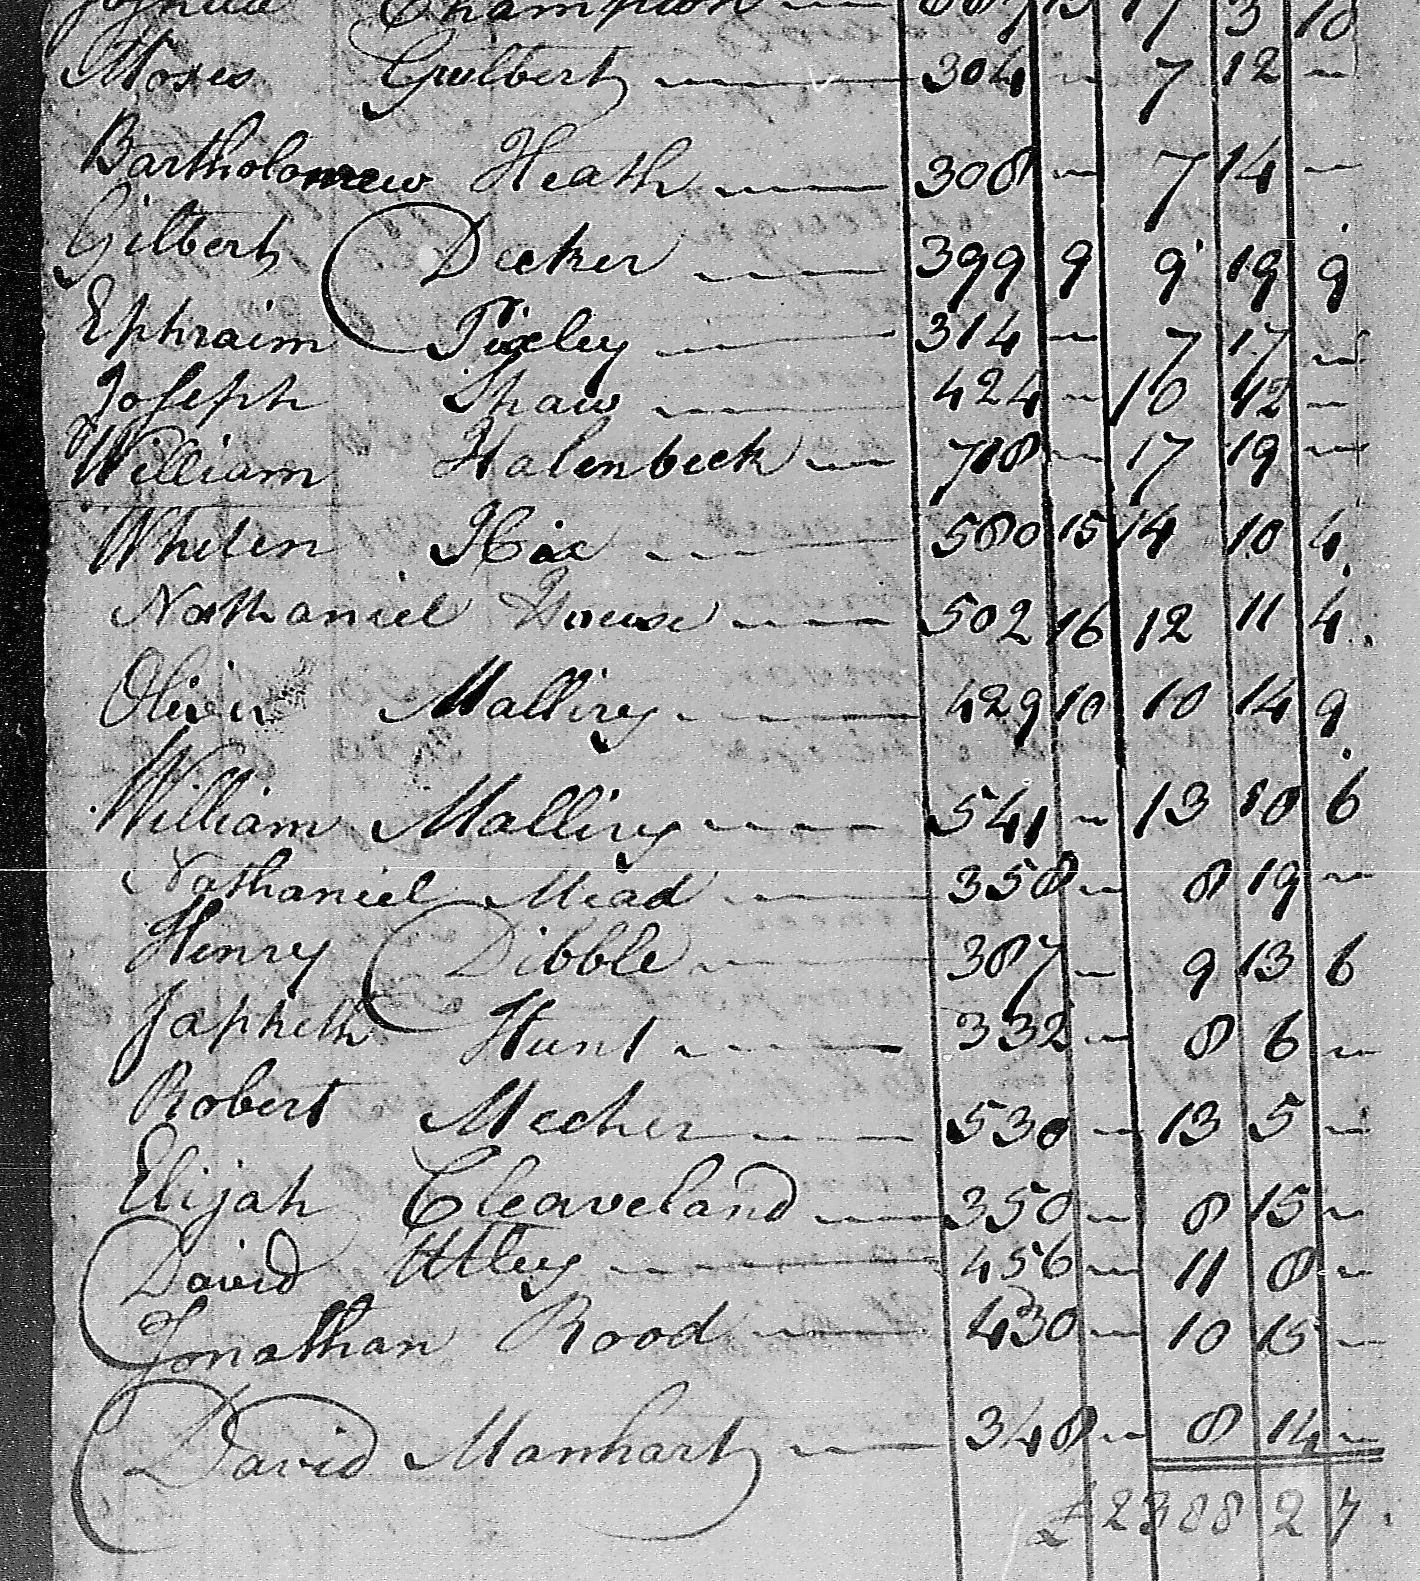 Champion — 687 15 17 3 10
Moses Guilbert — 304 — 7 12 —
Bartholomew Heath — 308 — 7 14 —
Gilbert Decker — 399 9 9 19 9
Ephraim Pixley — 314 — 7 17 —
Joseph Shaw — 424 — 10 12 —
William Halenbeck — 718 — 17 19 —
Whelen Hix — 580 15 14 10 4
Nathaniel House — 502 16 12 11 4
Oliver Malliry — 429 10 10 14 9
William Malliry — 541 — 13 10 6
Nathaniel Mead — 358 — 8 19 —
Henry Dibble — 387 — 9 13 6
Japheth Hunt — 332 — 8 6 —
Robert Meeker — 530 — 13 5 —
Elijah Cleaveland — 350 — 8 15 —
David Utley — 456 — 11 8 —
Jonathan Rood — 430 — 10 15 —
David Manhart — 348 — 8 14 —
£2388 2 7